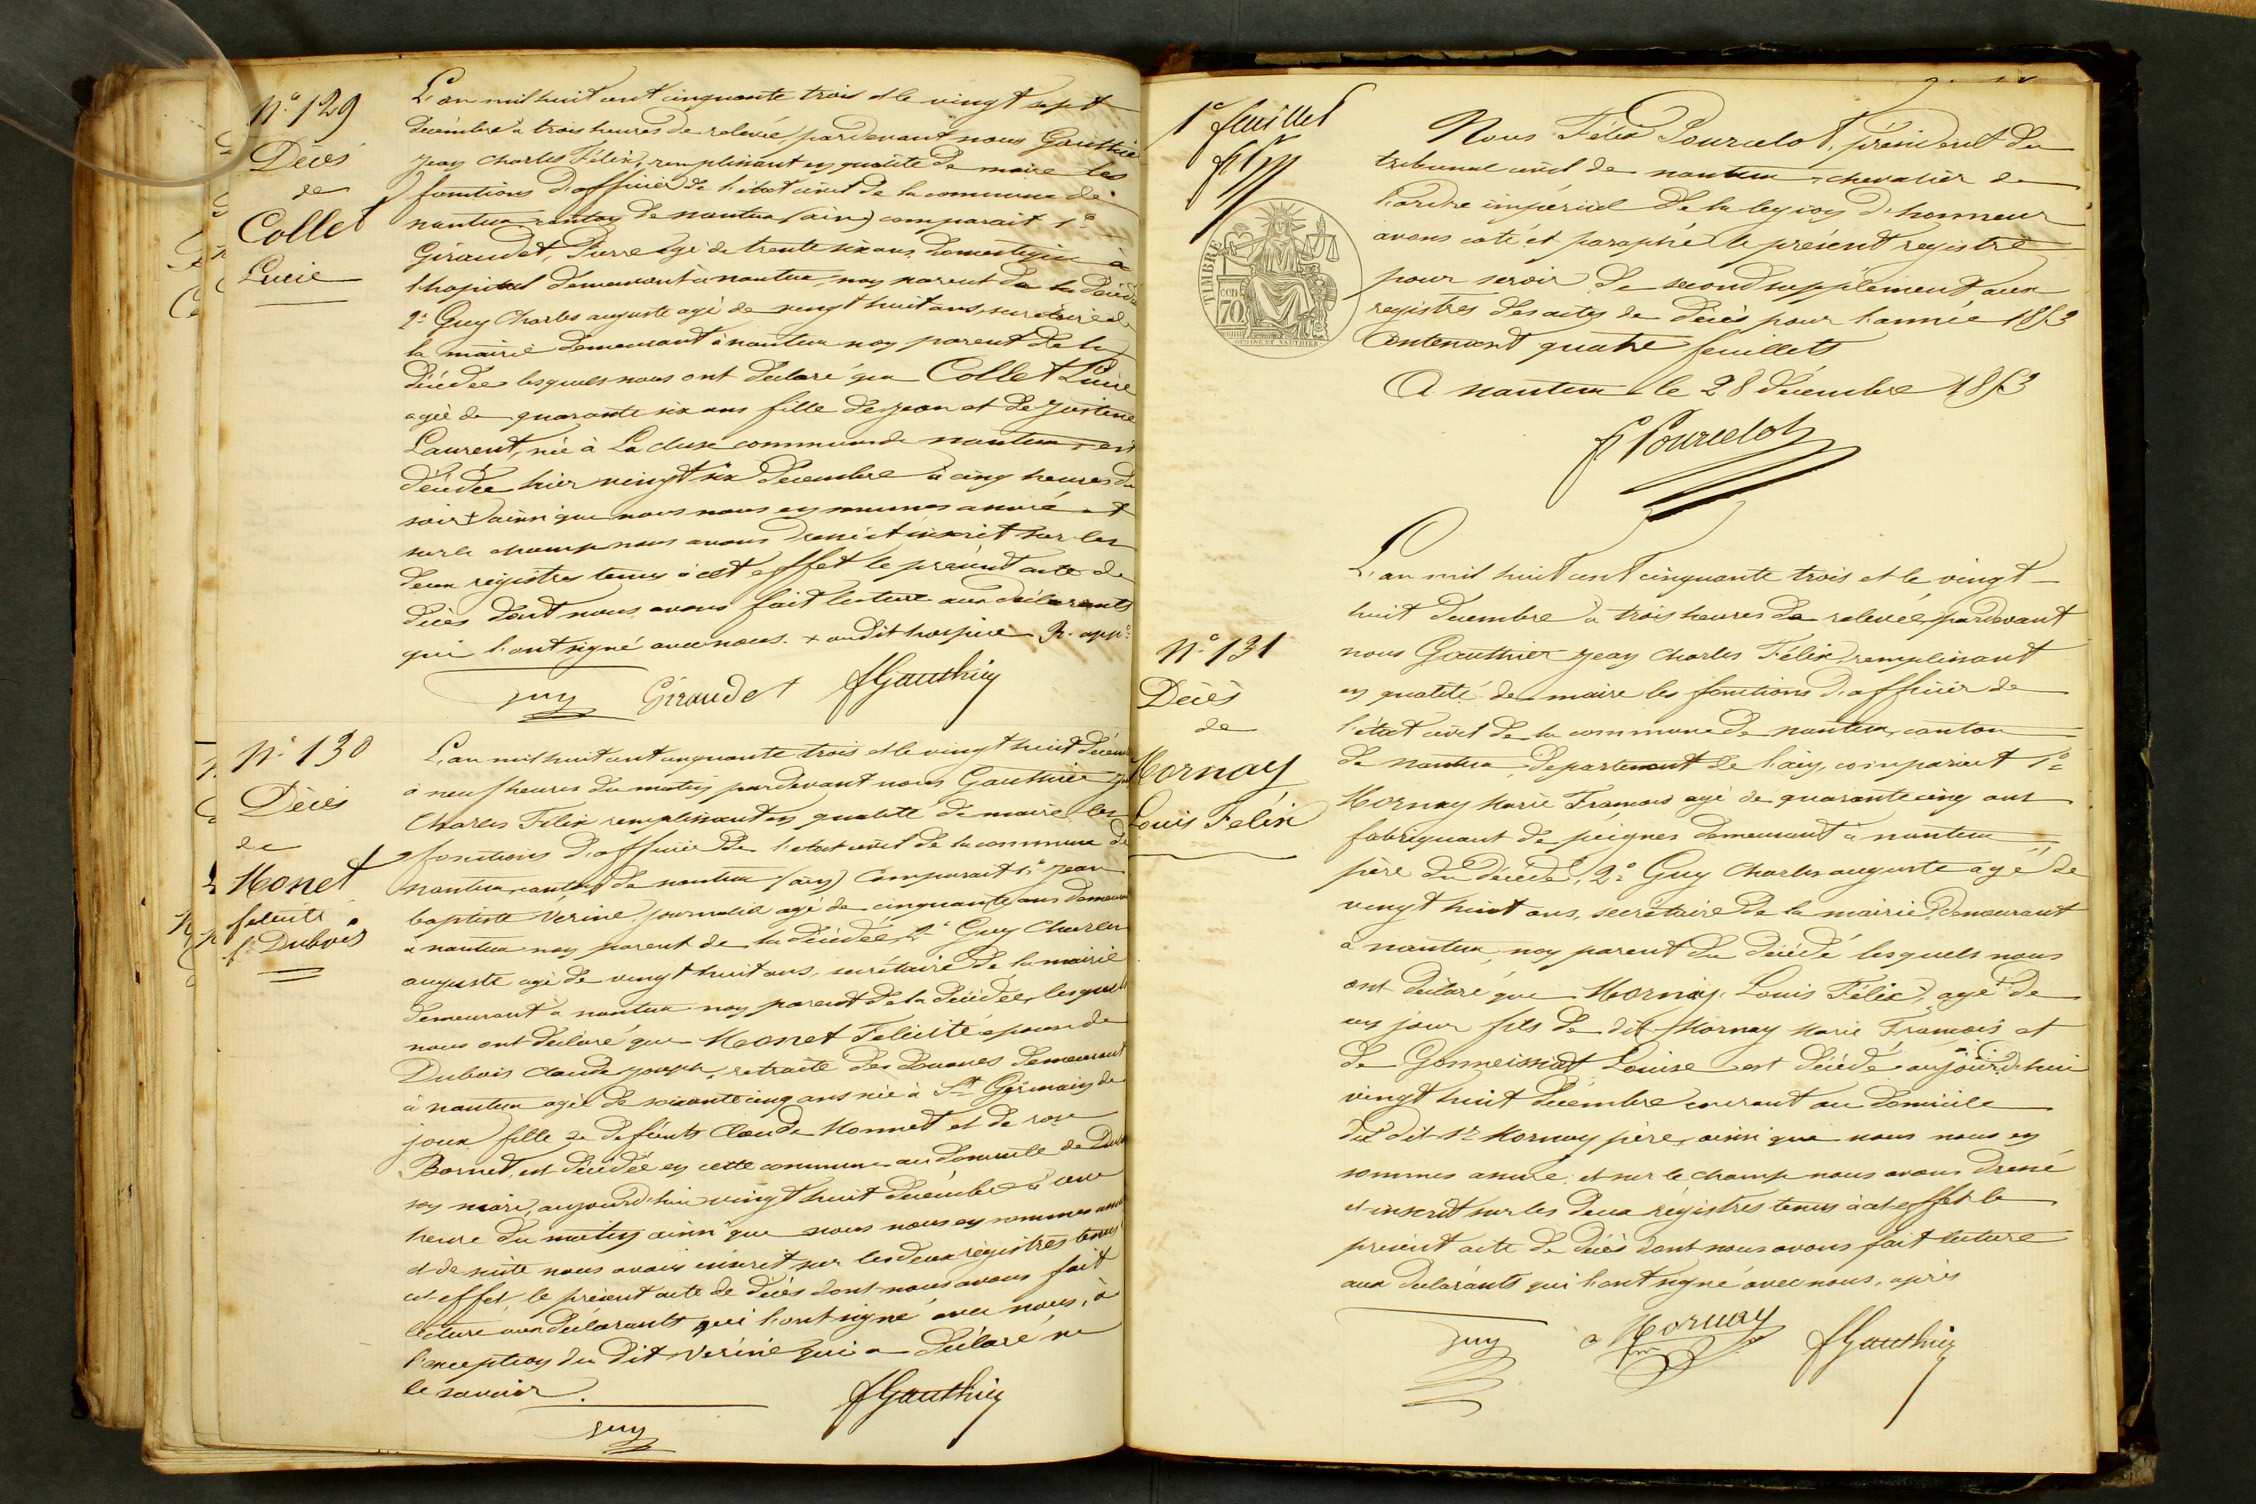 N.° 129
Décès
de
Collet
Lucie
L'an mil huit cent cinquante trois et le vingt sept
décembre à trois heures de relevée, pardevant nous Gauthier
jean Charles Félix, remplissant en qualité de maire les
fonctions d'officier de l'état civil de la commune de
nantua canton de nantua (ain) comparait 1.°
Giraudet, Pierre agé de trente six ans, domestique à
l'hopital demeurant à nantua, non parent de la décédée
2.° Guy Charles auguste agé de vingt huit ans, secrétaire de
la mairie demeurant à nantua non parent de la
décédée lesquels nous ont déclaré que Collet Lucie
agée de quarante six ans fille de jean et de justine
Laurent, née à La cluse commune de nantua, est
décédée hier vingt six décembre à cinq heures du
soir + ainsi que nous nous en sommes assuré et
sur le champ nous avons dressé et inscrit sur les
deux registres tenus à cet effet le présent acte de
décès dont nous avons fait lecture aux déclarants
qui l'ont signé avec nous. + audit hospice R. app.é
guy Giraudet fGauthier
N.° 130
Décès
de
Monet
felicité
f.e Dubois
L'an mil huit cent cinquante trois et le vingt huit décembre
à neuf heures du matin pardevant nous Gauthier jean
Charles Félix remplissant en qualité de maire les
fonctions d'officier de l'état civil de la commune de
nantua canton de nantua (ain) Comparait 1.° jean
baptiste Vérine, journalier agé de cinquante ans demeurant
à nantua non parent de la décédée, 2.° Guy Charles
auguste agé de vingt huit ans, secrétaire de la mairie
demeurant à nantua non parent de la décédée, lesquels
nous ont déclaré que Monet Felicité épouse de
Dubois claude joseph, retraité des douanes demeurant
à nantua agée de soixante cinq ans née à S.t Germain de
joux fille de défunts Claude Monnet et de rose
Bornet, est décédée en cette commune au domicile de Dubois
son mari, aujourd'hui vingt huit décembre à une
heure du matin ainsi que nous nous en sommes assuré
et de suite nous avons inscrit sur les deux régistres tenus à
cet effet le présent acte de décès dont nous avons fait
lecture aux déclarants qui l'ont signé avec nous, à
l'exception du dit Vérine qui a déclaré ne
le savoir.
guy fGauthier
1.er feuillet
Nous Félix Pourcelot, président du
tribunal civil de nantua, chevalier de
l'ordre impérial de la legion d'honneur
avons coté et paraphé le présent registre
pour servir de second supplément aux
registres des actes de décès pour l'année 1853
Contenant quatre feuillets
A nantua le 28 décembre 1853
F Pourcelot
TIMBRE
70
N.° 131
Décès
de
Mornay
Louis Félix
L'an mil huit cent cinquante trois et le vingt
huit décembre à trois heures de relevée, pardevant
nous Gauthier jean Charles Félix, remplissant
en qualité de maire les fonctions d'officier de
l'état civil de la commune de nantua, canton
de nantua, département de l'ain, comparait 1.°
Mornay Marie François agé de quarante cinq ans
fabriquant de peignes demeurant à nantua
père du décédé, 2.° Guy Charles auguste agé de
vingt huit ans, secrétaire de la mairie, demeurant
à nantua, non parent du décédé lesquels nous
ont déclaré que Mornay, Louis Félix, agé de
un jour fils de dit Mornay Marie François et
de Gonneissiat Louise est décédé aujourd'hui
vingt huit décembre courant au domicile
du dit S.r Mornay père, ainsi que nous nous en
sommes assuré, et sur le champ nous avons dressé
et inscrit sur les deux régistres tenus à cet effet le
présent acte de décès dont nous avons fait lecture
aux déclarants qui l'ont signé avec nous, après
guy Mornay fGauthier